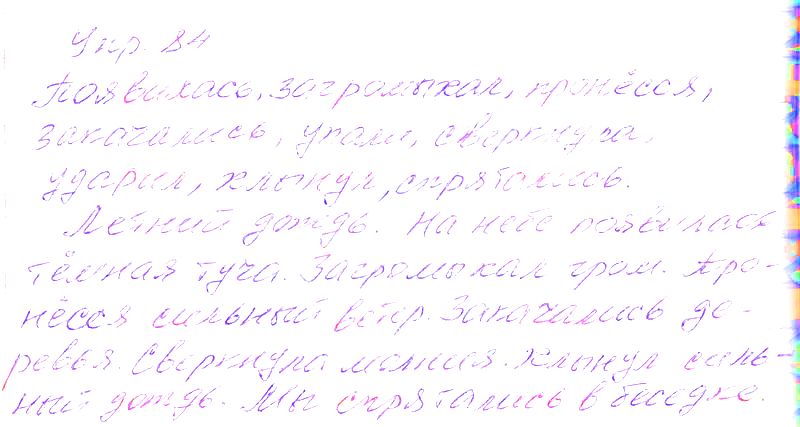 Упр. 84
Появилась, загромыхал, пронёсся,
закачались, упали, сверкнула,
ударил, хлынул, спрятались.
Летний дождь. На небе появилась
тёмная туча. Загромыхал гром. Про-
нёсся сильный ветер. Закачались де-
ревья. Сверкнула молния. Хлынул силь-
ный дождь. Мы спрятались в беседке.